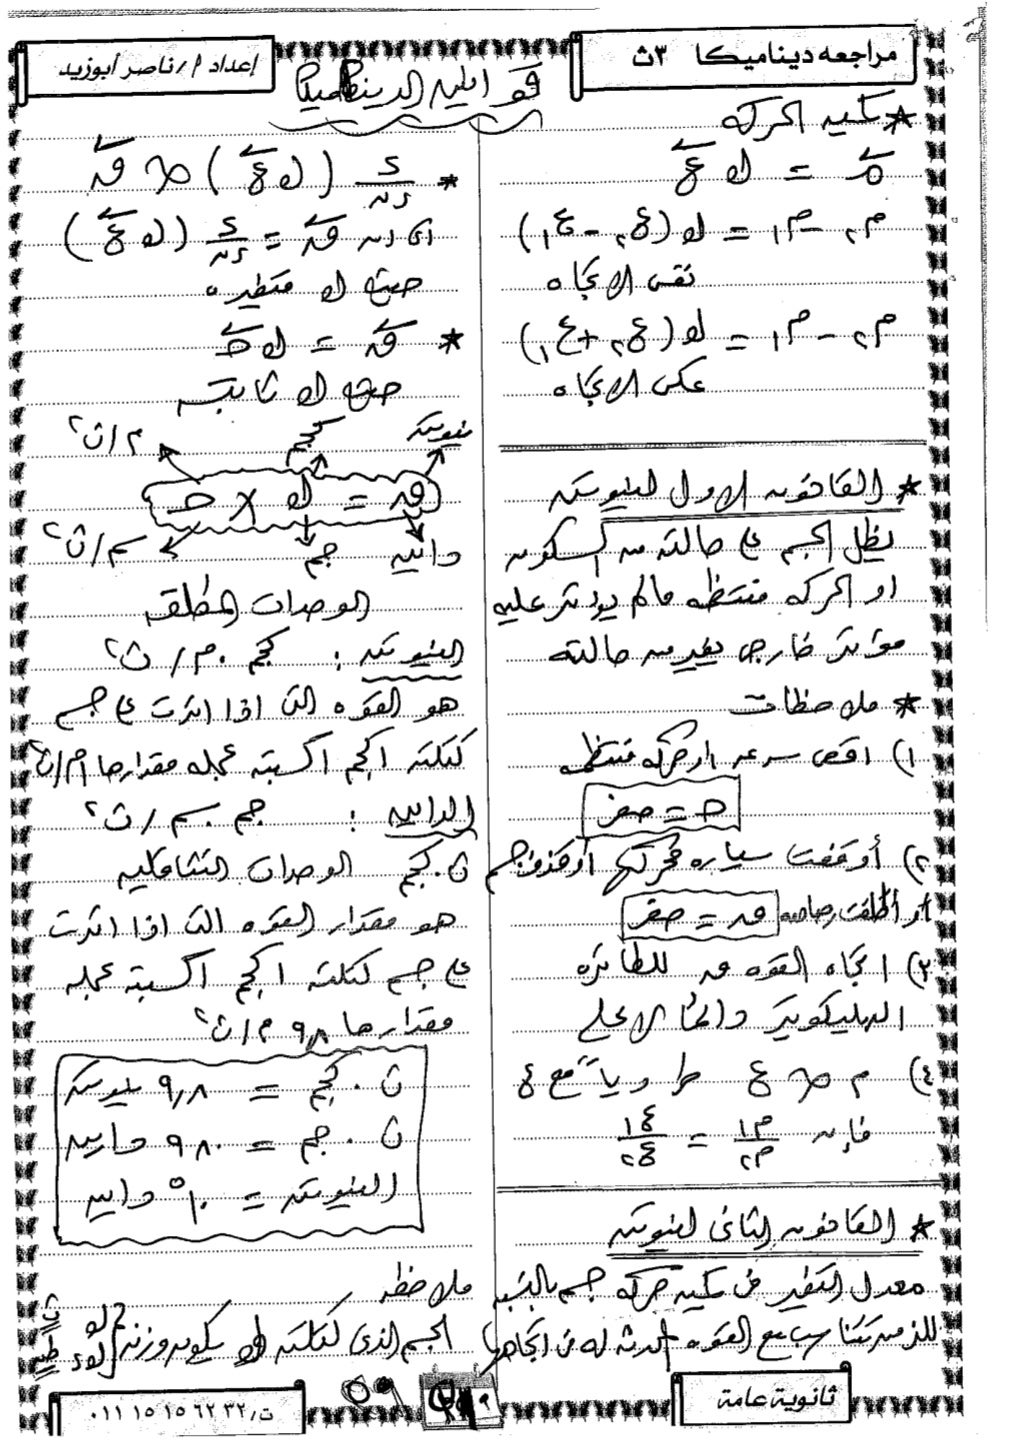 مراجعه ديناميكا ٣ث
إعداد أ/ناصر أبوزيد
قوانين الديناميكا
* كمية الحركه
م = ك ع
م٢ - م١ = ك (ع٢ - ع١)
نفس الاتجاه
م٢ - م١ = ك (ع٢ + ع١)
عكس الاتجاه
* القانون الاول لنيوتن
يظل الجسم على حالته من السكون
او الحركه منتظمه مالم يؤثر عليه
مؤثر خارجى يغير من حالته
* ملاحظات
١) اقصى سرعه او حركه منتظمه
حـ = صفر
٢) أوقفت سياره محركها أو قذف جسم
أو أطلقت رصاصه ق = صفر
٣) اتجاه القوه ق للطائره
الهليكوبتر دائما لاعلى
٤) م ∝ ع طرديا مع ع
فإن م١/م٢ = ع١/ع٢
* القانون الثانى لنيوتن
معدل التغير فى كمية حركه جسم بالنسبه
للزمن تتناسب مع القوه المحدثه له فى اتجاهها
* د/دن (ك ع) ∝ ق
اى ان ق = د/دن (ك ع)
حيث ك متغيره
* ق = ك حـ
حيث ك ثابته
نيوتن كجم م/ث٢
ق = ك × حـ
داين جم سم/ث٢
الوحدات المطلقه
النيوتن : كجم . م/ث٢
هو القوه التى اذا اثرت على جسم
كتلته ١ كجم اكسبته عجله مقدارها ١م/ث٢
الداين : جم . سم/ث٢
ث.كجم الوحدات التثاقليه
هو مقدار القوه التى اذا اثرت
على جسم كتلته ١ كجم اكسبته عجله
مقدارها ٩,٨ م/ث٢
ث . كجم = ٩,٨ نيوتن
ث . جم = ٩٨٠ داين
النيوتن = ١٠^٥ داين
ملاحظه
الجسم الذى كتلته ك يكون وزنه
ثانوية عامة
٥٩
ت/ ٠١١ ١٥ ١٥ ٦٢ ٣٢